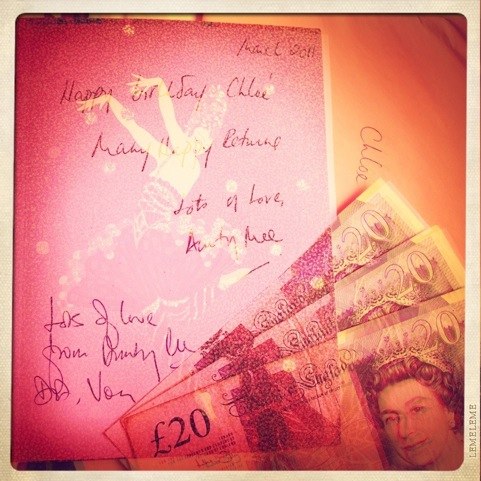 March 2011
Happy Birthday Chloé
Many Happy Returns
Lots of Love,
Lots of love
from
Chloe
£20
20
20
20
LEMELEME